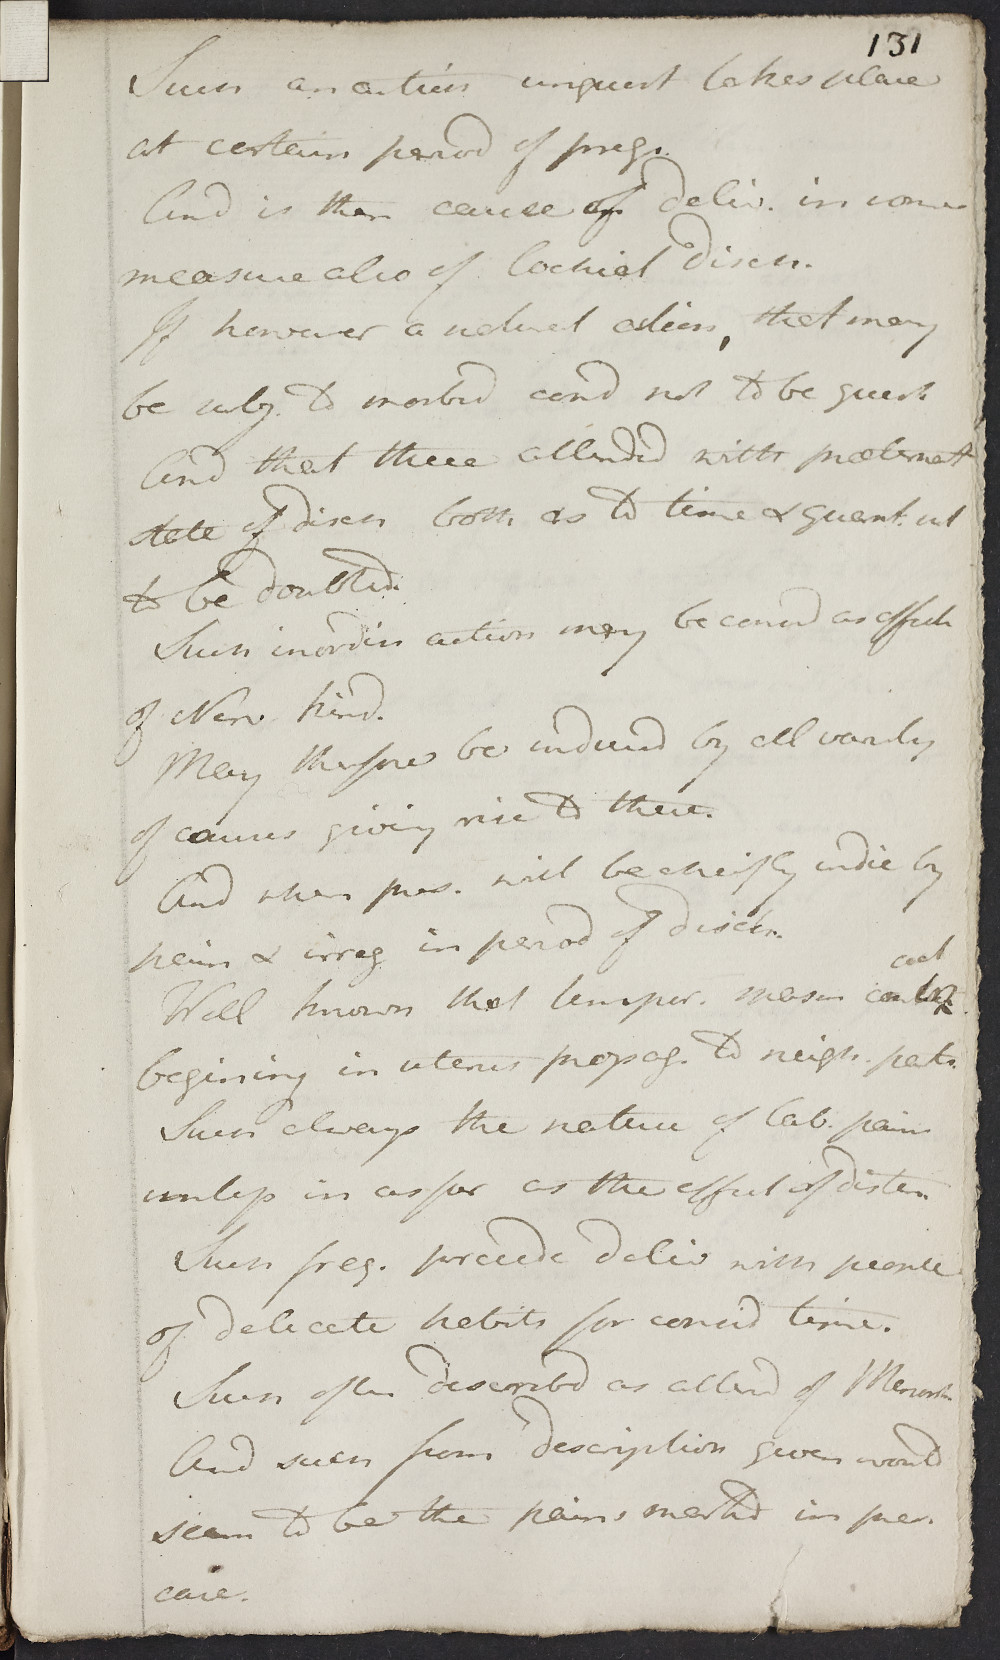 131
Such an action unquest takes place
at certain period of preg.
And is then cause of deliv. in some
measure also of Lochial disch.
If however a natural action, that may
be subj. to morbid cond not to be quest.
And that these attended with præternatl
state of disch both as to time & quant. not
to be doubted.
Such inordin action may be consid as effect
of Nerv. kind.
May therfore be induced by all variety
of causes giving rise to these.
And when pres. will be cheifly indic by
pain & irreg in period of disch.
Well known that temper. measur
begining in uterus propag. to neigh. parts.
Such always the nature of lab. pains
unless in as far as the effect of disten
Such freq. precede deliv with people
of delicate habits for consid time.
Such often described as attend of Menorrh
And such from description given would
seem to be the pains markd in pres.
case.